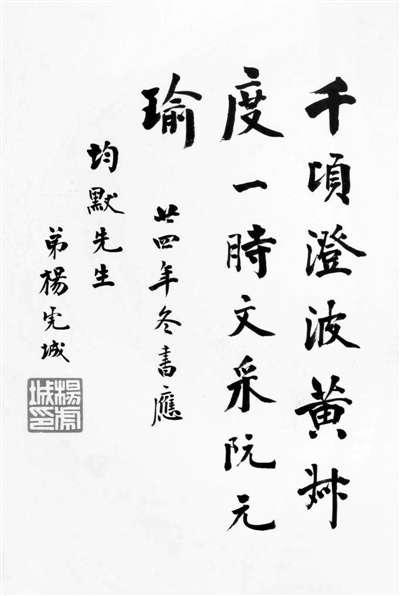 千頃澄波黃叔
度一時文采阮元
瑜 廿四年冬書應
均默先生
弟楊虎城
楊虎
城印